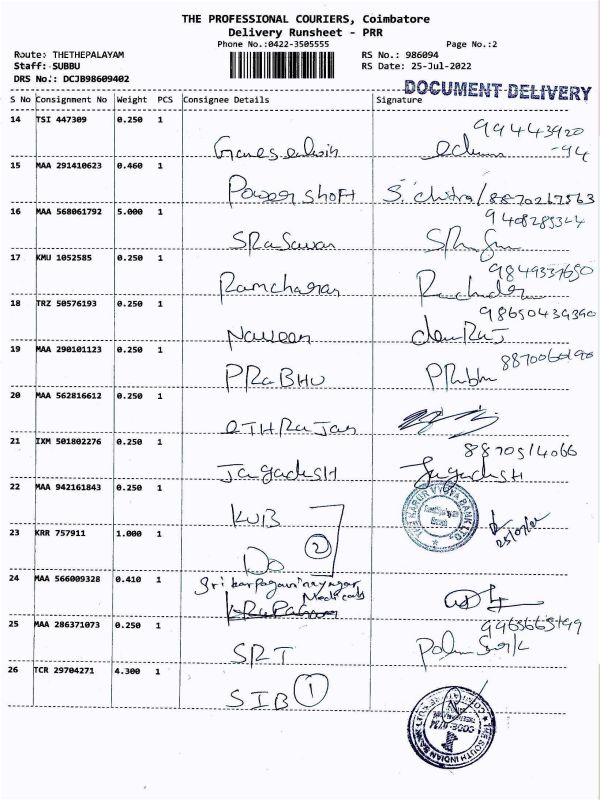 THE PROFESSIONAL COURIERS, Coimbatore
Delivery Runsheet - PRR
Phone No.:0422-3505555 Page No.:2
Route: THETHEPALAYAM RS No.: 986094
Staff: SUBBU RS Date: 25-Jul-2022
DRS No.: DCJB98609402
DOCUMENT DELIVERY
S No Consignment No Weight PCS Consignee Details Signature
14 TSI 447309 0.250 1
99443920
-94
15 MAA 291410623 0.460 1
Power shoft S. chitra/8870267563
16 MAA 568061792 5.000 1
SRaSawan
17 KMU 1052585 0.250 1
Ramcharan
18 TRZ 50576193 0.250 1
Naveen
19 MAA 290101123 0.250 1
PRaBHU
20 MAA 562816612 0.250 1
21 IXM 501802276 0.250 1
8870514066
JagadisH JagadisH
22 MAA 942161843 0.250 1
KVB
THE KARUR VYSYA BANK LTD.
23 KRR 757911 1.000 1
Do 2
24 MAA 566009328 0.410 1
Medicals
25 MAA 286371073 0.250 1
SRT
26 TCR 29704271 4.300 1
SIB 1
THE SOUTH INDIAN BANK LTD